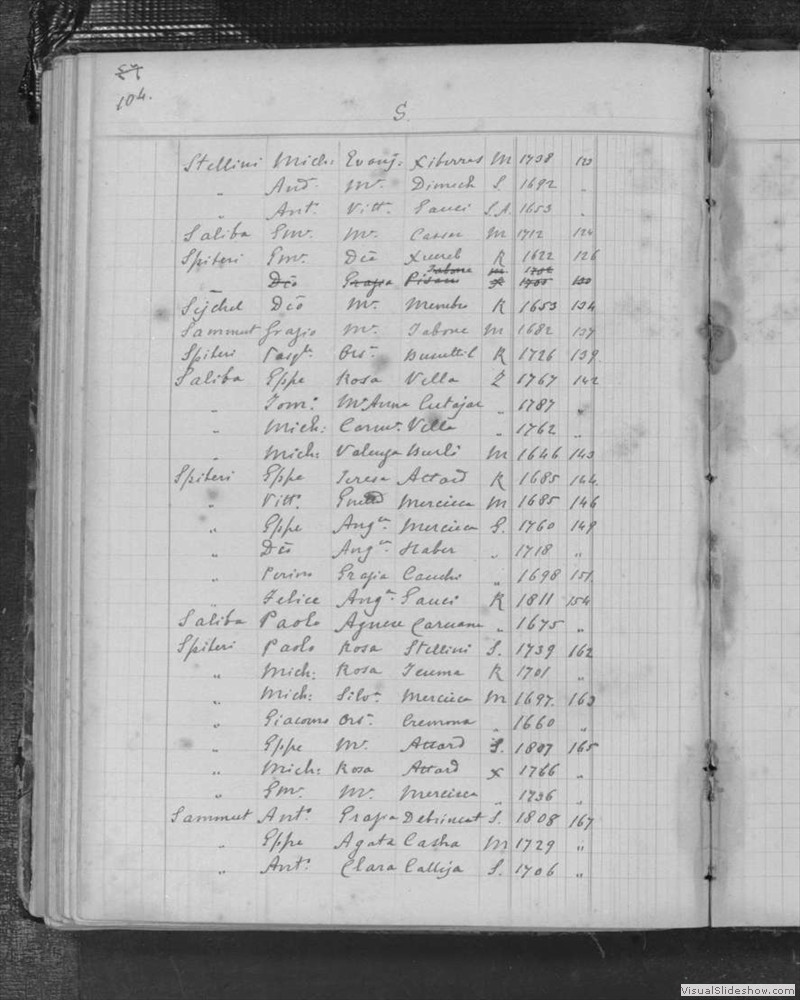 104.
S.
Stellini Mich: Evanj: Xiberras M 1738 123
„ And. Mª. Dimech S. 1692 „
„ Antº. Vittª. Gauci S.A. 1653 „
Saliba Gmᵉ. Mª. Cassar M 1712 124
Spiteri Gmᵉ. Dia Xuereb K 1622 126
Dio Grazia Pisani Tabone 130
Sejchel Dio Mª. Membro K 1653 134
Sammut Grazio Mª. Tabone M 1682 137
Spiteri Pasqˡᵉ. Orsª. Busuttil K 1726 139
Saliba Gppe Rosa Vella Z 1767 142
„ Tomº. Mª Anna Cutajar „ 1787 „
„ Mich: Carmª. Vella „ 1762 „
„ Mich: Valenza Burli M 1646 143
Spiteri Gppe Teresa Attard K 1685 144
„ Vittº. Mercieca M 1685 146
„ Gppe Angᶜᵃ Mercieca G. 1760 149
„ Dio Angᶜᵃ Haber „ 1718 „
„ Perino Grazia Cauchi „ 1698 151
„ Felice Angᵃ Gauci K 1811 154
Saliba Paolo Agnese Caruana „ 1675 „
Spiteri Paolo Rosa Stellini S. 1739 162
„ Mich: Rosa Teuma K 1701 „
„ Mich: Silvª. Mercieca M 1697. 163
„ Giacomo Orsª. Cremona „ 1660 „
„ Gppe Mª. Attard S. 1807 165
„ Mich: Rosa Attard X 1766 „
„ Gmᵉ. Mª. Mercieca „ 1736 „
Sammut Antº. Grazia Debrincat S. 1808 167
„ Gppe Agata Casha M 1729 „
„ Antº. Clara Calleja S. 1706 „
VisualSlideshow.com